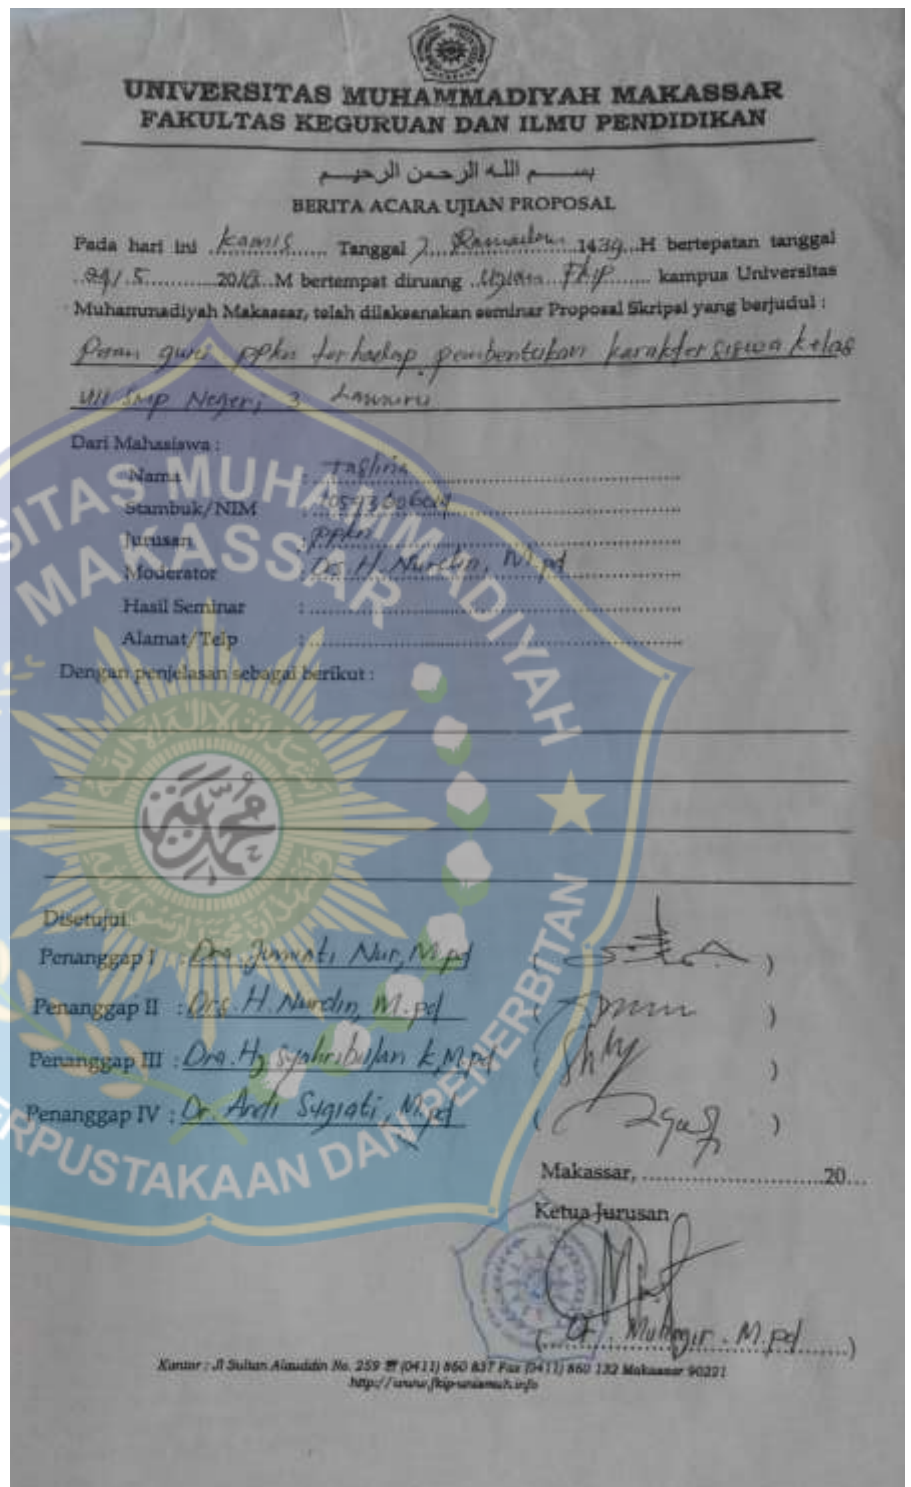 UNIVERSITAS MUHAMMADIYAH MAKASSAR
FAKULTAS KEGURUAN DAN ILMU PENDIDIKAN
بسم الله الرحمن الرحيم
BERITA ACARA UJIAN PROPOSAL
Pada hari ini Kamis Tanggal 7 Ramadan 1439 H bertepatan tanggal
24/5 2018 M bertempat diruang Ujian FKIP kampus Universitas
Muhammadiyah Makassar, telah dilaksanakan seminar Proposal Skripsi yang berjudul :
Peran guru ppkn terhadap pembentukan karakter siswa kelas
VIII SMP Negeri 3
Dari Mahasiswa :
Nama :
Stambuk/NIM :
Jurusan : ppkn
Moderator : Drs. H. Nurdin, M.pd
Hasil Seminar :
Alamat/Telp :
Dengan penjelasan sebagai berikut :
Disetujui
Penanggap I : Dra. Jumiati Nur, M.pd ( )
Penanggap II : Drs. H. Nurdin, M.pd ( )
Penanggap III : Dra. Hj. Syahribulan K, M.pd ( )
Penanggap IV : Dr. Andi Sugiati, M.pd ( )
Makassar, ........................20...
Ketua Jurusan
(Dr. Muhajir. M.pd)
Kantor : Jl Sultan Alauddin No. 259 ☎ (0411) 860 837 Fax (0411) 860 132 Makassar 90221
http://www.fkip-unismuh.info
UNIVERSITAS MUHAMMADIYAH
MAKASSAR
PERPUSTAKAAN DAN PENERBITAN